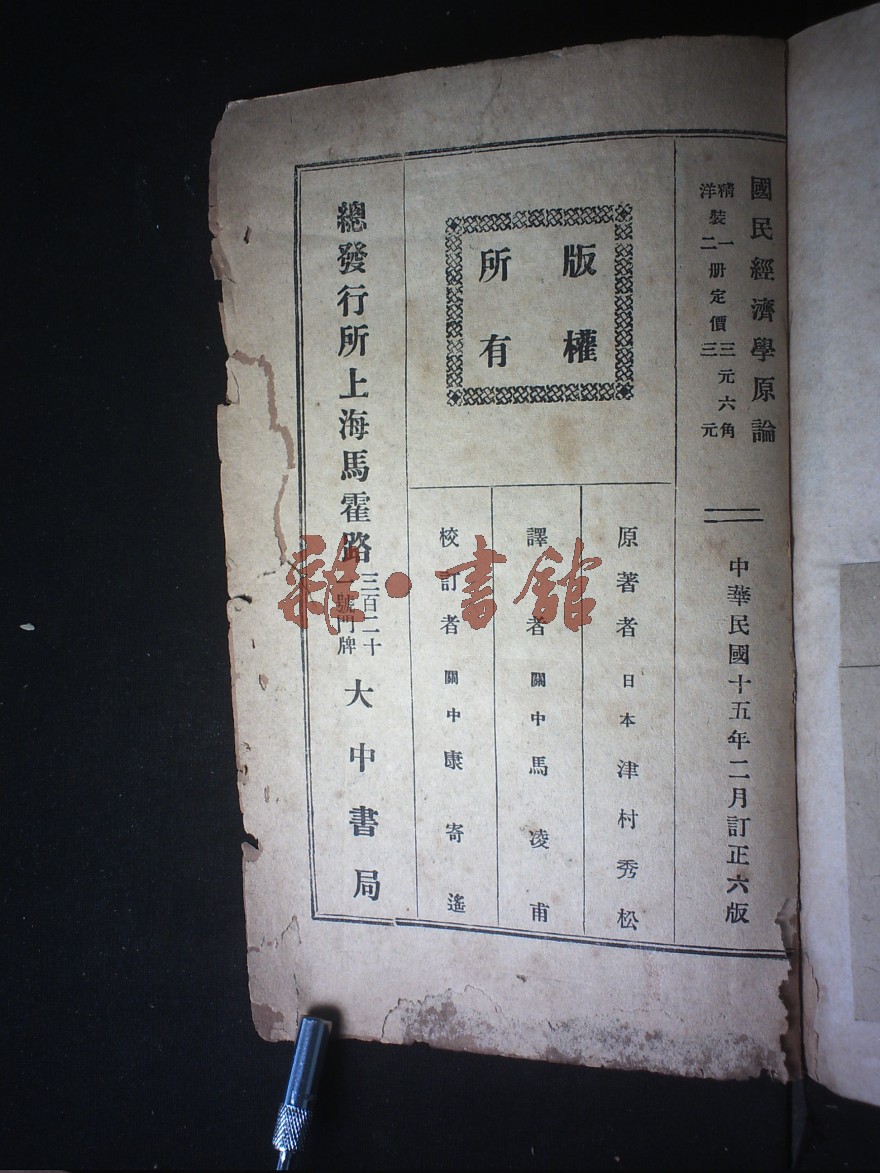 國民經濟學原論
精裝一册定價三元六角
洋裝二册定價三元
中華民國十五年二月訂正六版
版權
所有
原著者 日本 津村秀松
譯者 關中 馬凌甫
校訂者 關中 康寄遙
總發行所上海馬霍路三百二十一號門牌大中書局
雜·書館